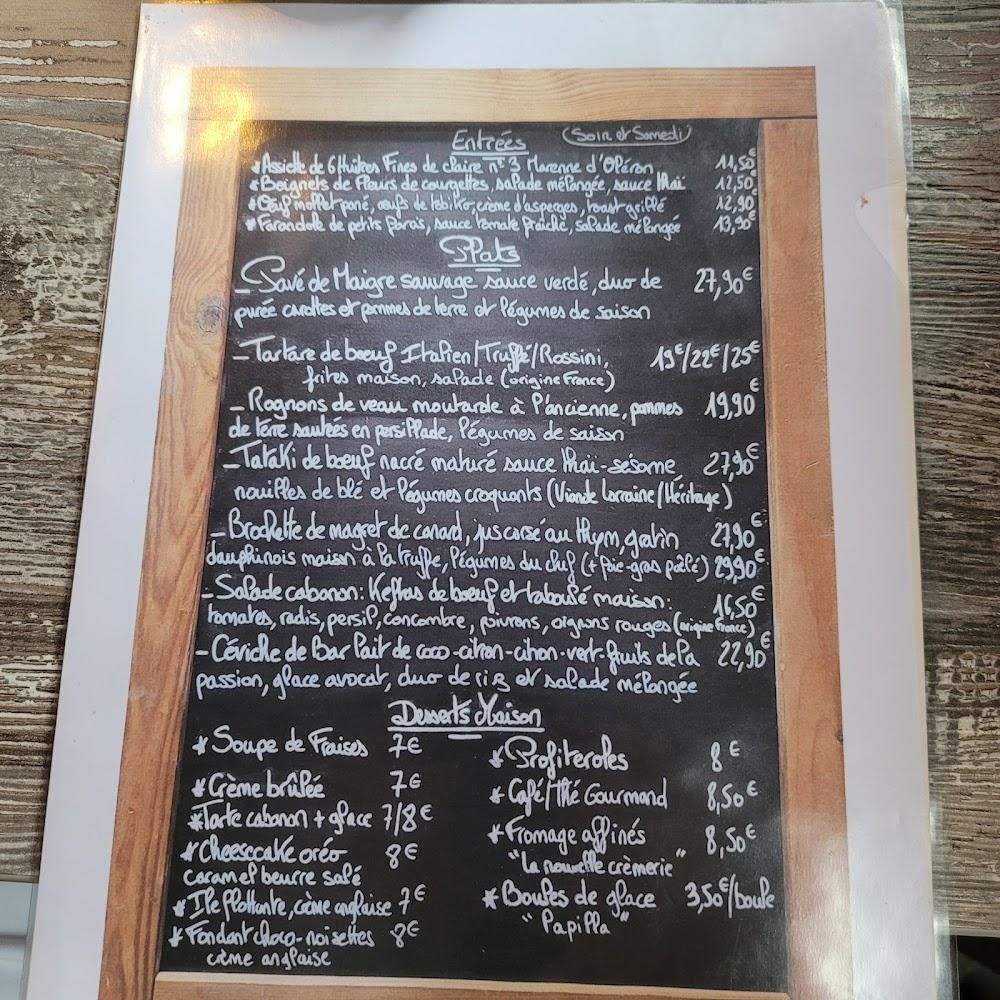 Entrées (Soir et Samedi)
* Assiette de 6 Huîtres Fines de claire n° 3 Marenne d'Oléron 11,50€
* Beignets de Fleurs de courgettes, salade mélangée, sauce thaï 12,50€
* Œuf mollet pané, œufs de tobiko, crème d'asperges, toast grillé 12,90€
* Farandole de petits farcis, sauce tomate fraîche, salade mélangée 13,90€
Plats
- Pavé de Maigre sauvage sauce verdé, duo de 27,90€
purée carottes et pommes de terre et légumes de saison
- Tartare de boeuf Italien/Truffé/Rossini, 19€/22€/25€
frites maison, salade (origine France)
- Rognons de veau moutarde à l'ancienne, pommes 19,90€
de terre sautées en persillade, légumes de saison
- Tataki de boeuf nacré maturé sauce thaï-sésame 27,90€
nouilles de blé et légumes croquants (Viande Lorraine/Héritage)
- Brochette de magret de canard, jus corsé au thym, gratin 27,90€
dauphinois maison à la truffe, légumes du chef (+ foie-gras poêlé) 29,90€
- Salade cabanon: Keftas de boeuf et taboulé maison: 16,50€
tomates, radis, persil, concombre, poivrons, oignons rouges (origine France)
- Céviche de Bar lait de coco-citron-citron-vert-fruits de la 22,90€
passion, glace avocat, duo de riz et salade mélangée
Desserts Maison
* Soupe de Fraises 7€
* Crème brûlée 7€
* Tarte cabanon + glace 7/8€
* Cheesecake oréo 8€
caramel beurre salé
* Ile flottante, crème anglaise 7€
* Fondant choco-noisettes 8€
crème anglaise
* Profiteroles 8€
* Café/Thé Gourmand 8,50€
* Fromage affinés 8,50€
"La nouvelle crèmerie"
* Boules de glace 3,50€/boule
"Papilla"